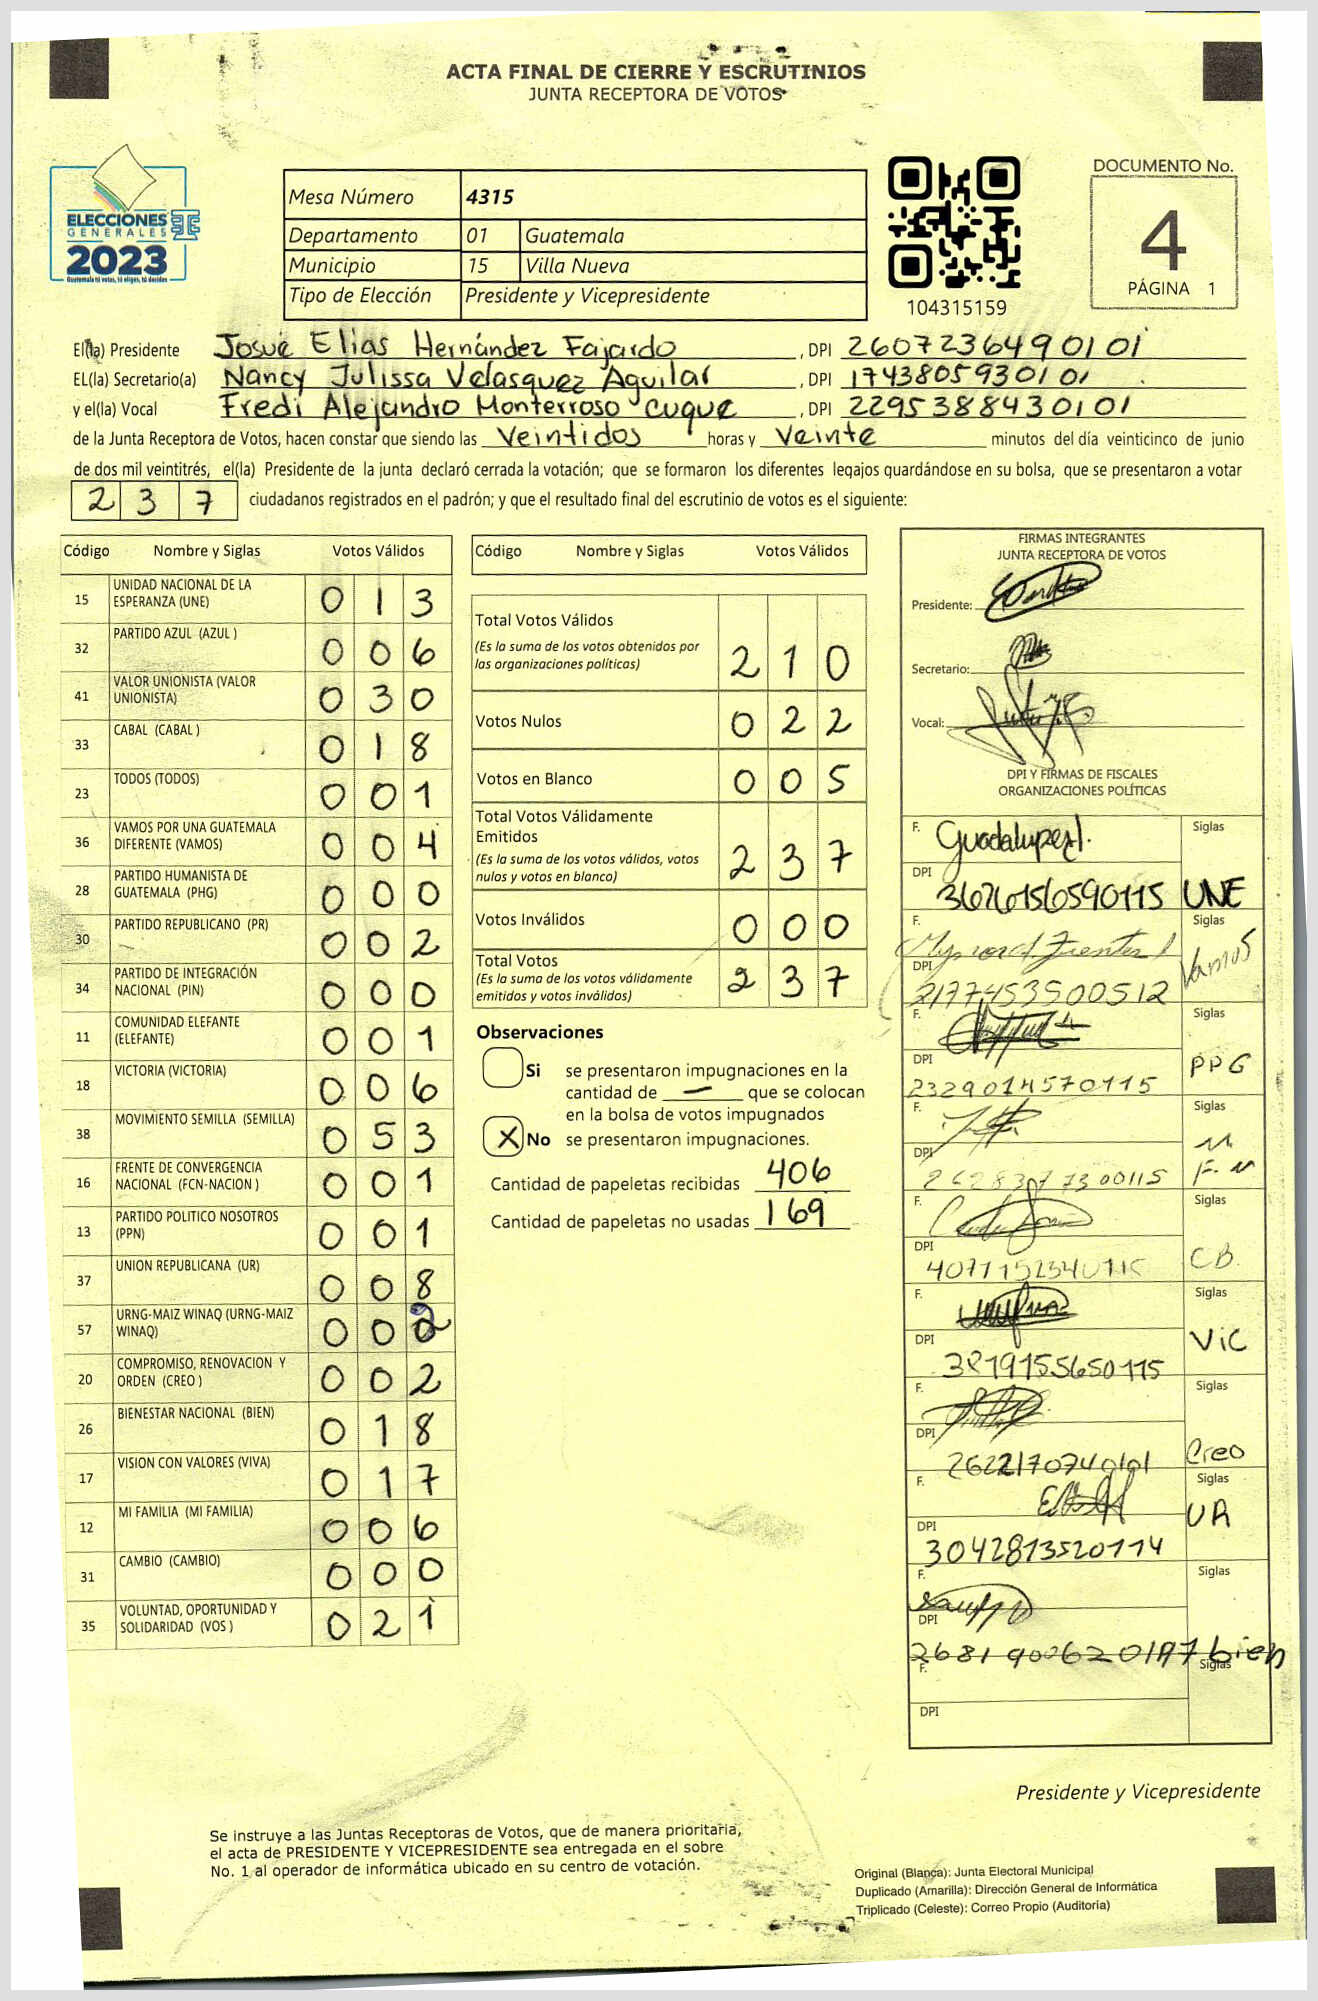 ACTA FINAL DE CIERRE Y ESCRUTINIOS
JUNTA RECEPTORA DE VOTOS
ELECCIONES
GENERALES
2023
Guatemala tú votas, tú eliges, tú decides
Mesa Número 4315
Departamento 01 Guatemala
Municipio 15 Villa Nueva
Tipo de Elección Presidente y Vicepresidente
104315159
DOCUMENTO No.
4
PÁGINA 1
El(la) Presidente Josué Elías Hernández Fajardo , DPI 2607236490101
EL(la) Secretario(a) Nancy Julissa Velasquez Aguilar , DPI 1743805930101
y el(la) Vocal Fredi Alejandro Monterroso Cuque , DPI 2295388430101
de la Junta Receptora de Votos, hacen constar que siendo las Veintidos horas y Veinte minutos del día veinticinco de junio
de dos mil veintitrés, el(la) Presidente de la junta declaró cerrada la votación; que se formaron los diferentes legajos quardándose en su bolsa, que se presentaron a votar
2 3 7 ciudadanos registrados en el padrón; y que el resultado final del escrutinio de votos es el siguiente:
Código Nombre y Siglas Votos Válidos
15 UNIDAD NACIONAL DE LA ESPERANZA (UNE) 0 1 3
32 PARTIDO AZUL (AZUL ) 0 0 6
41 VALOR UNIONISTA (VALOR UNIONISTA) 0 3 0
33 CABAL (CABAL ) 0 1 8
23 TODOS (TODOS) 0 0 1
36 VAMOS POR UNA GUATEMALA DIFERENTE (VAMOS) 0 0 4
28 PARTIDO HUMANISTA DE GUATEMALA (PHG) 0 0 0
30 PARTIDO REPUBLICANO (PR) 0 0 2
34 PARTIDO DE INTEGRACIÓN NACIONAL (PIN) 0 0 0
11 COMUNIDAD ELEFANTE (ELEFANTE) 0 0 1
18 VICTORIA (VICTORIA) 0 0 6
38 MOVIMIENTO SEMILLA (SEMILLA) 0 5 3
16 FRENTE DE CONVERGENCIA NACIONAL (FCN-NACION ) 0 0 1
13 PARTIDO POLITICO NOSOTROS (PPN) 0 0 1
37 UNION REPUBLICANA (UR) 0 0 8
57 URNG-MAIZ WINAQ (URNG-MAIZ WINAQ) 0 0 2
20 COMPROMISO, RENOVACION Y ORDEN (CREO ) 0 0 2
26 BIENESTAR NACIONAL (BIEN) 0 1 8
17 VISION CON VALORES (VIVA) 0 1 7
12 MI FAMILIA (MI FAMILIA) 0 0 6
31 CAMBIO (CAMBIO) 0 0 0
35 VOLUNTAD, OPORTUNIDAD Y SOLIDARIDAD (VOS ) 0 2 1
Código Nombre y Siglas Votos Válidos
Total Votos Válidos
(Es la suma de los votos obtenidos por
las organizaciones políticas) 2 1 0
Votos Nulos 0 2 2
Votos en Blanco 0 0 5
Total Votos Válidamente
Emitidos
(Es la suma de los votos válidos, votos
nulos y votos en blanco) 2 3 7
Votos Inválidos 0 0 0
Total Votos
(Es la suma de los votos válidamente
emitidos y votos inválidos) 2 3 7
Observaciones
Si se presentaron impugnaciones en la
cantidad de — que se colocan
en la bolsa de votos impugnados
X No se presentaron impugnaciones.
Cantidad de papeletas recibidas 406
Cantidad de papeletas no usadas 169
FIRMAS INTEGRANTES
JUNTA RECEPTORA DE VOTOS
Presidente:
Secretario:
Vocal:
DPI Y FIRMAS DE FISCALES
ORGANIZACIONES POLÍTICAS
F. Siglas
DPI 3676156590115 UNE
F. Siglas
DPI 2177453500512 Vamos
F. Siglas
DPI 2329014570115 PPG
F. Siglas
DPI
F. Siglas
DPI CB
F. Siglas
DPI 3219155650115 VIC
F. Siglas
DPI 2622170740101 Creo
F. Siglas
DPI 3042813520114 UR
F. Siglas
DPI bien
F. Siglas
DPI
Presidente y Vicepresidente
Se instruye a las Juntas Receptoras de Votos, que de manera prioritaria,
el acta de PRESIDENTE Y VICEPRESIDENTE sea entregada en el sobre
No. 1 al operador de informática ubicado en su centro de votación.
Original (Blanca): Junta Electoral Municipal
Duplicado (Amarilla): Dirección General de Informática
Triplicado (Celeste): Correo Propio (Auditoría)